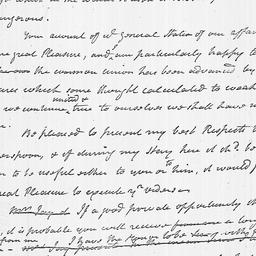 ungerous.
Your account of ye general State of our affair
me great Pleasure, and I am particularly happy to
the common union has been advanced by
ures which some thought calculated to weak
united &
we continue true to ourselves we shall have n
Be pleased to present my best Respects
erspoon, & if during my Stay here it shd. be
to be useful either to you or him, it would
eal Pleasure to execute yr. orders—
If a good private opportunity
, it is probable you will receive a lon
from me I have the Honor to be Sir, with